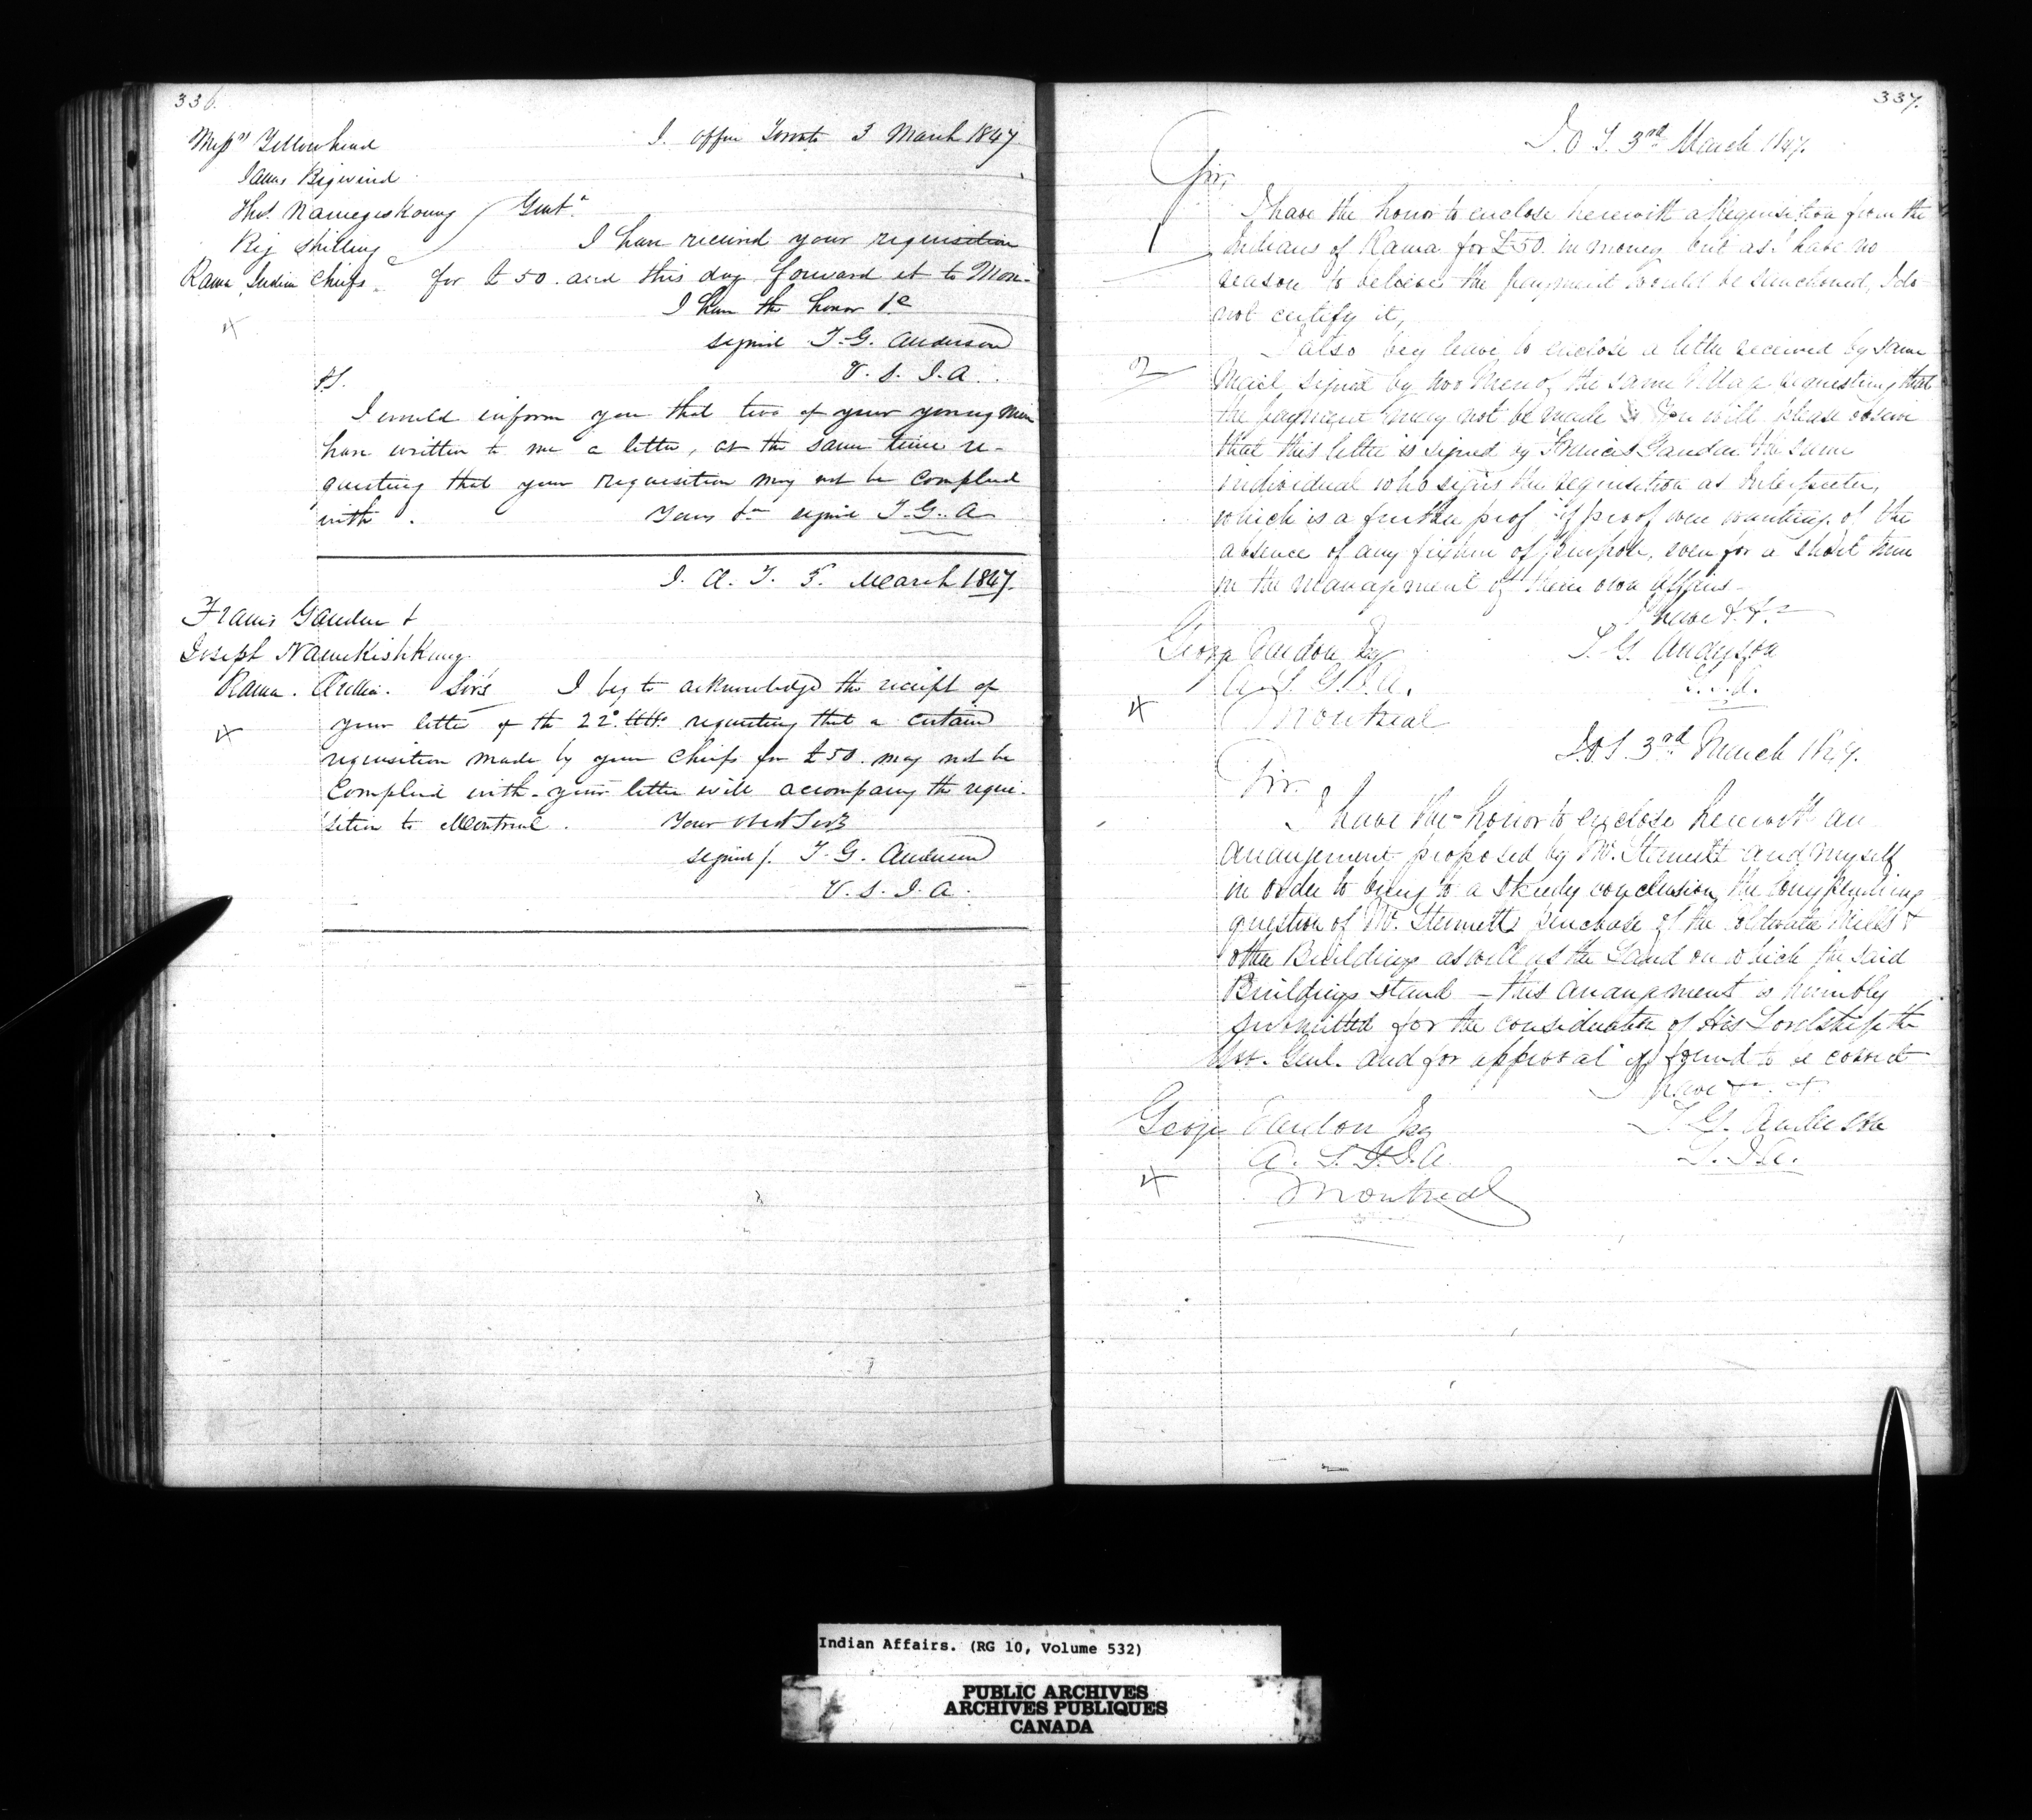 336.
Messrs Yellowhead
James Bigwind
Thos. Namegiskoung
Big Shilling
Rama Indian Chiefs.
I. Office Toronto 3 March 1847
Gentn
I have received your requisition
for £50. and this day forward it to Mon-
I have the honor &c
signed T. G. Anderson
V. S. I. A.
PS.
I would inform you that two of your young Men
have written to me a letter, at the same time re-
questing that your requisition may not be complied
with. Yours &c signed T. G. A
I. O. T. 3. March 1847.
Francis Gaudeu &
Joseph Namekishkung
Rama. Orillia. Sirs I beg to acknowledge the receipt of
your letter of the 22d. Ulto. requesting that a certain
requisition made by your Chiefs for £50. may not be
Complied with. your letter will accompany the requi-
sition to Montreal. Your obedt Servt
signed/. T. G. Anderson
V. S. I. A.
337.
I. O T. 3rd March 1847.
Sir,
1 I have the honor to enclose herewith a Requisition from the
Indians of Rama for £50. in money but as I have no
reason to believe the payment would be sanctioned, I do
not certify it,
2 I also beg leave to enclose a letter received by same
Mail signed by two Men of the same Village requesting that
the payment may not be made You will please observe
that this letter is signed by Francis Gaudeu the same
individual who signs the requisition as Interpreter,
which is a further prof if proof were wanting of the
absence of any fixture of purpose, even for a short time
in the management of their own Affairs-
I have &c &c
George Vardon Esq T. G. Anderson
A. S. G. I. A. S. I. A.
Montreal
I. O. T. 3rd March 1847.
Sir.
I have the honor to enclose herewith an
arrangement proposed by Mr. Stennett and myself
in order to bring to a speedy conclusion the long pending
question of Mr. Stennetts purchase of the Coldwater Mills &
other Buildings as well as the Land on which the said
Buildings stand - this arrangement is humbly
submitted for the consideration of His Lordship the
Gov. Genl. and for approval if found to be correct
I have &c. &c
George Vardon Esq T. G. Anderson
A. S. G. I. A. S. I. A.
Montreal
Indian Affairs. (RG 10, Volume 532)
PUBLIC ARCHIVES
ARCHIVES PUBLIQUES
CANADA